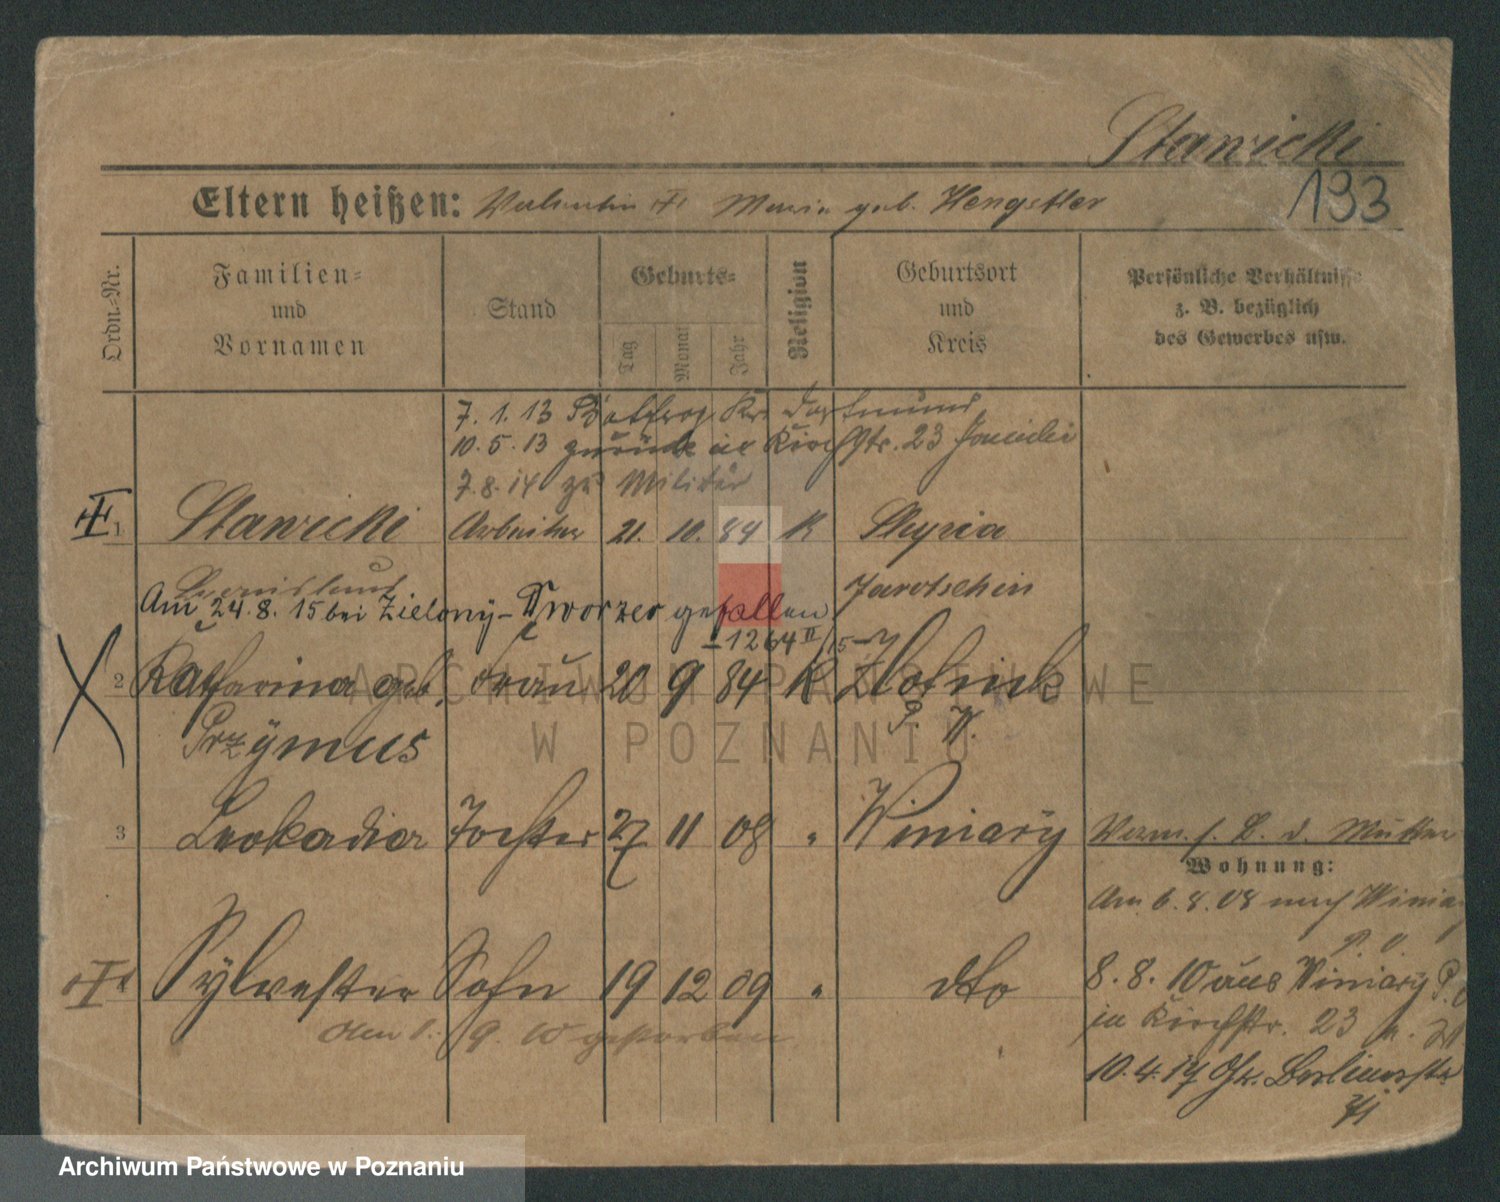 Stawicki
Eltern heißen: Valentin Marie geb. Hengstler
193
Ordn.-Nr.
Familien-
und
Vornamen
Stand
Geburts-
Tag
Monat
Jahr
Religion
Geburtsort
und
Kreis
Persönliche Verhältnisse
z. B. bezüglich
des Gewerbes usw.
7. 1. 13 Kr. Dortmund
10. 5. 13 zurück in Kirchstr. 23
7. 8. 14 zu Militär
1 Stawicki Arbeiter 21. 10. 84 K
Jarotschin
Am 24. 8. 15 bei Zielony-Dworzec gefallen
1264 II/15
2 Katharina geb. Frau 20 9 84 K Zlotnik
P. W.
Przymus
3 Leokadia Tochter 27 11 08 " Winiary
Verm. s. b. d. Mutter
Wohnung:
Am 6. 8. 08 nach Winiary
P. O.
Sylvester Sohn 19 12 09 " dto
8. 8. 10 aus Winiary P. O
in Kirchstr. 23
den 1. 9. 10 gestorben
10. 4. 17 Gr. Berlinerstr
ARCHIWUM PAŃSTWOWE
W POZNANIU
Archiwum Państwowe w Poznaniu